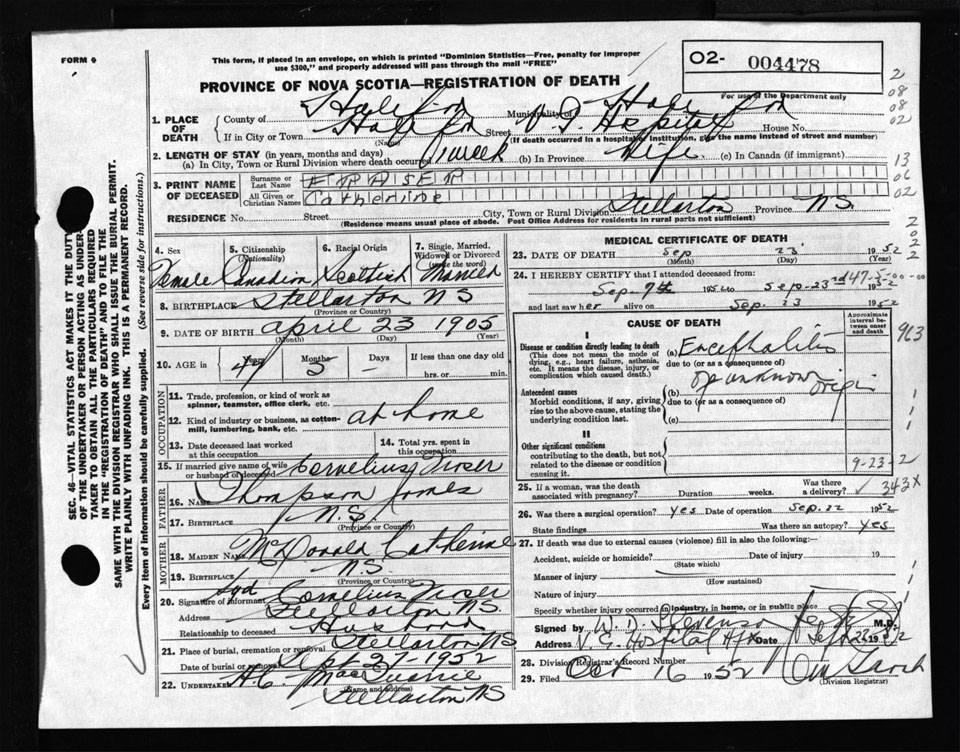 FORM 6
This form, if placed in an envelope, on which is printed "Dominion Statistics—Free, penalty for improper
use $300," and properly addressed will pass through the mails "FREE"
O2- 004478
For use of the Department only
PROVINCE OF NOVA SCOTIA—REGISTRATION OF DEATH
2
08
08
02
1. PLACE OF DEATH
County of Halifax Municipality of Halifax
If in City or Town Halifax Street V. G. Hospital House No.
(Name) (If death occurred in a hospital or institution, give the name instead of street and number)
2. LENGTH OF STAY (in years, months and days)
(a) In City, Town or Rural Division where death occurred 1 week (b) In Province life (c) In Canada (if immigrant)
13
06
02
3. PRINT NAME OF DECEASED
Surname or Last Name FRASER
All Given or Christian Names Catherine
RESIDENCE No. Street City, Town or Rural Division Stellarton Province N.S.
(Residence means usual place of abode. Post Office Address for residents in rural parts not sufficient)
2
0
2
2
4. Sex 5. Citizenship (Nationality) 6. Racial Origin 7. Single, Married, Widowed or Divorced (write the word)
Female Canadian Scottish Married
8. BIRTHPLACE Stellarton N S
(Province or Country)
9. DATE OF BIRTH April 23 1905
(Month) (Day) (Year)
10. AGE in Years Months Days If less than one day old
47 5 hrs. or min.
OCCUPATION
11. Trade, profession, or kind of work as
spinner, teamster, office clerk, etc.
12. Kind of industry or business, as cotton-
mill, lumbering, bank, etc. at home
13. Date deceased last worked
at this occupation
14. Total yrs. spent in
this occupation
15. If married give name of wife
or husband of deceased Cornelius Fraser
FATHER
16. NAME Thompson James
17. BIRTHPLACE N.S.
(Province or Country)
MOTHER
18. MAIDEN NAME McDonald Catherine
19. BIRTHPLACE N.S.
(Province or Country)
20. Signature of informant Sgd Cornelius Fraser
Address Stellarton N.S.
Relationship to deceased Husband
21. Place of burial, cremation or removal Stellarton N S
Date of burial or removal Sept 27-1952
22. Undertaker H.C. MacQuarrie
(Name and address)
Stellarton N S
MEDICAL CERTIFICATE OF DEATH
23. DATE OF DEATH Sep 23 1952
(Month) (Day)
24. I HEREBY CERTIFY that I attended deceased from:
Sep. 9th 1952 to Sep-23rd 47-5-00-00-00
and last saw her alive on Sep. 23 1952
CAUSE OF DEATH
Approximate interval between onset and death
963
I
Disease or condition directly leading to death
(This does not mean the mode of
dying, e.g., heart failure, asthenia,
etc. It means the disease, injury, or
complication which caused death.)
(a) Encephalitis
due to (or as a consequence of)
Antecedent causes
Morbid conditions, if any, giving
rise to the above cause, stating the
underlying condition last.
(b) of unknown origin
due to (or as a consequence of)
(c)
II
Other significant conditions
contributing to the death, but not
related to the disease or condition
causing it.
9-23-2
25. If a woman, was the death
associated with pregnancy? Duration weeks. Was there a delivery? 343X
26. Was there a surgical operation? yes Date of operation Sep. 22 1952
State findings Was there an autopsy? Yes
27. If death was due to external causes (violence) fill in also the following:—
Accident, suicide or homicide? Date of injury 19
(State which)
Manner of injury
(How sustained)
Nature of injury
Specify whether injury occurred in industry, in home, or in public place
Signed by W. D. Stevenson M.D.
Address V. G. Hospital Hfx Date Sept 23 1952
28. Division Registrar's Record Number
29. Filed Oct 16 1952
(Division Registrar)
SEC. 46—VITAL STATISTICS ACT MAKES IT THE DUTY
OF THE UNDERTAKER OR PERSON ACTING AS UNDER-
TAKER TO OBTAIN ALL THE PARTICULARS REQUIRED
IN THE "REGISTRATION OF DEATH" AND TO FILE THE
SAME WITH THE DIVISION REGISTRAR WHO SHALL ISSUE THE BURIAL PERMIT.
WRITE PLAINLY WITH UNFADING INK. THIS IS A PERMANENT RECORD.
Every item of information should be carefully supplied. (See reverse side for instructions.)